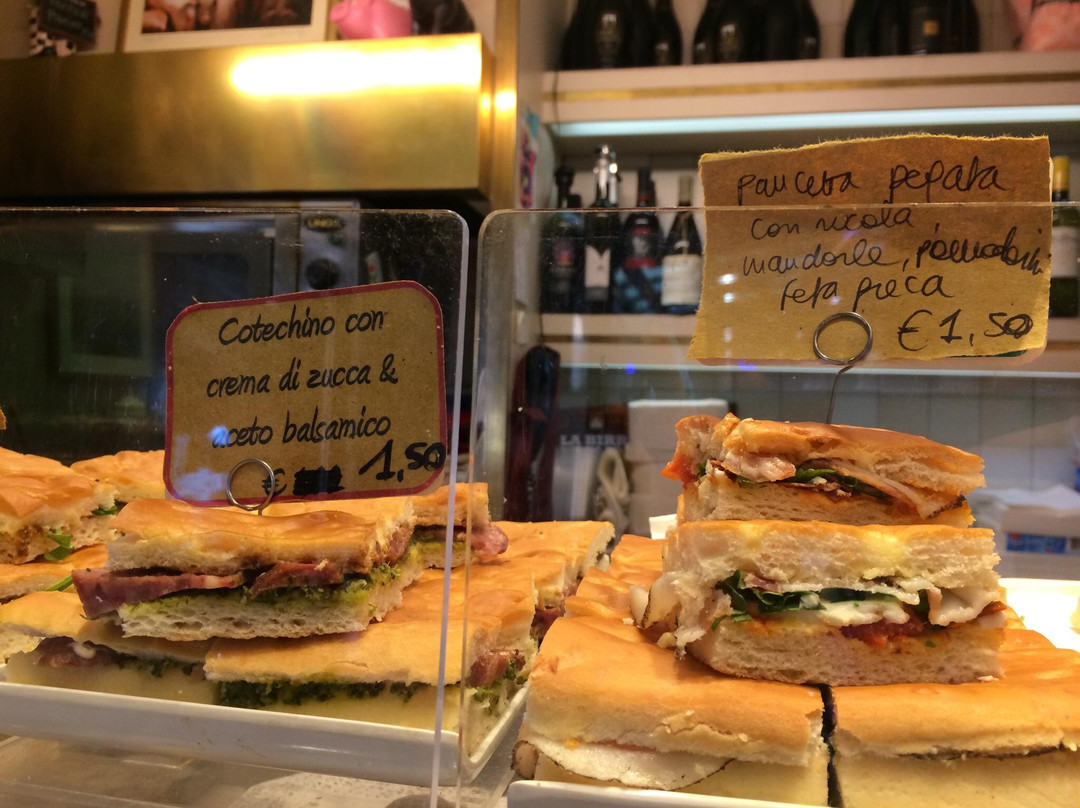 Cotechino con
crema di zucca &
aceto balsamico
€ 1,50
pancetta pepata
con rucola,
mandorle, pomodorini
feta greca
€1,50
LA BIRR